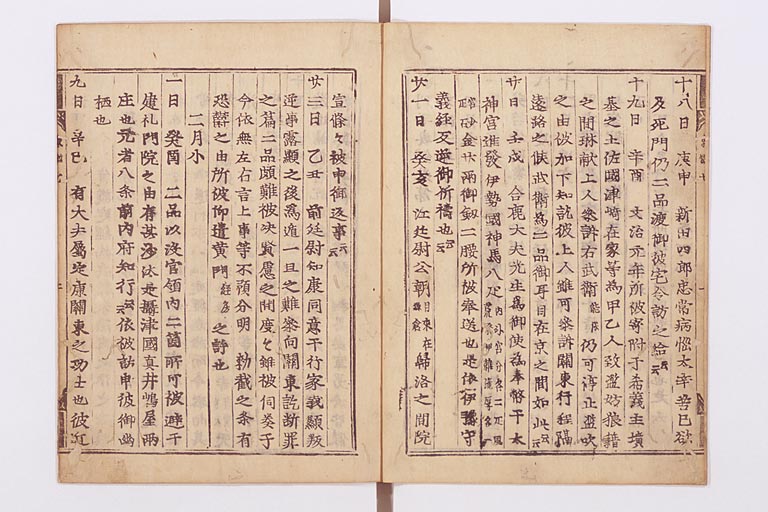 十八日　庚申　新田四郎忠常病悩太辛苦已欲
及死門仍二品渡御彼宅令訪之給云云
十九日　辛酉　文治元年所被寄附于希義主墳
墓之土佐國津崎在家等為甲乙人致濫妨狼藉
之間琳献上人参訴右武衛能保仍可停止濫吹
之由被加下知訖彼上人雖可参訴關東行程隔
遠路之候武衛為二品御耳目在京之間如此云云
廿日　壬戌　合鹿大夫光生為御使為奉幣于太
神宮進發伊勢國神馬八疋
砂金廿兩御釼二腰所被奉送也是依伊豫守
義經反逆御祈禱也云云
廿一日　癸亥　江廷尉公朝日来在鎌倉歸洛之間院
宣條々被申御返事云云
廿三日　乙丑　前廷尉知康同意于行家義顯叛
逆事露顯之後為遁一旦之難參向關東訖断罪
之篇二品頗難被决賢慮之間度々雖被伺奏于
今依無左右言上事等不預分明勅裁之条有
恐欝之由所被仰遣黄門經房之許也
二月小
一日　癸酉　二品以没官領内二箇所可被避于
建礼門院之由有其沙汰是攝津國真井嶋屋両
庄也元者八条前内府知行云云依被訪申彼御幽
栖也
九日　辛巳　有大夫属定康關東之功士也彼江